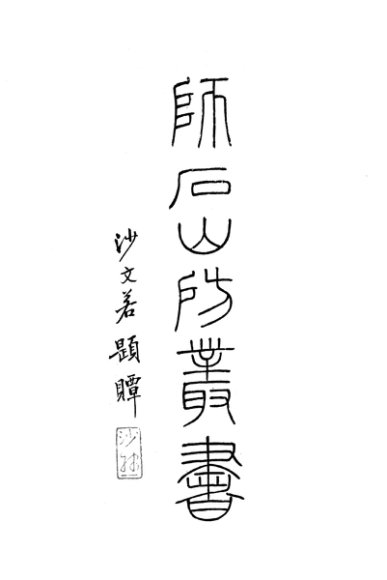 師石山房叢書
沙文若題贉
沙